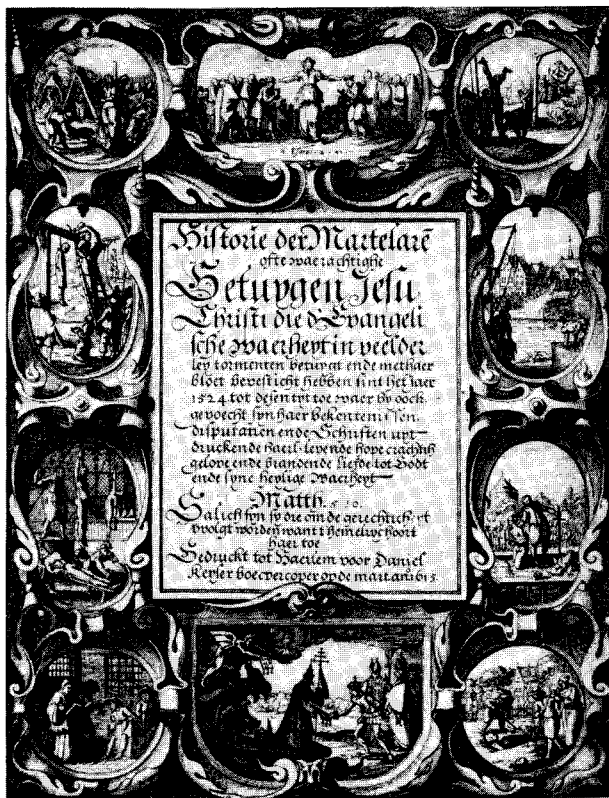 Historie der Martelarē
ofte waerachtighe
Getuygen Jesu
Christi die d'Evangeli
sche waerheyt in veelder
ley tormenten betuygt ende met haer
bloet bevesticht hebben sint het jaer
1524 tot desen tyt toe waer by oock
gevoecht syn haer bekentenissen
disputatien ende Schriften uyt
druckende haerl. levende hope crachtich
gelove ende brandende liefde tot Godt
ende syne heylige Waerheyt
Matth. 5. 10.
Salich syn sy die om de gerechticheyt
vvolgt worden want t hemelryc hoort
haer toe
Gedruckt tot Haerlem voor Daniel
Keyser boecvercoper op de mart. an. 1615